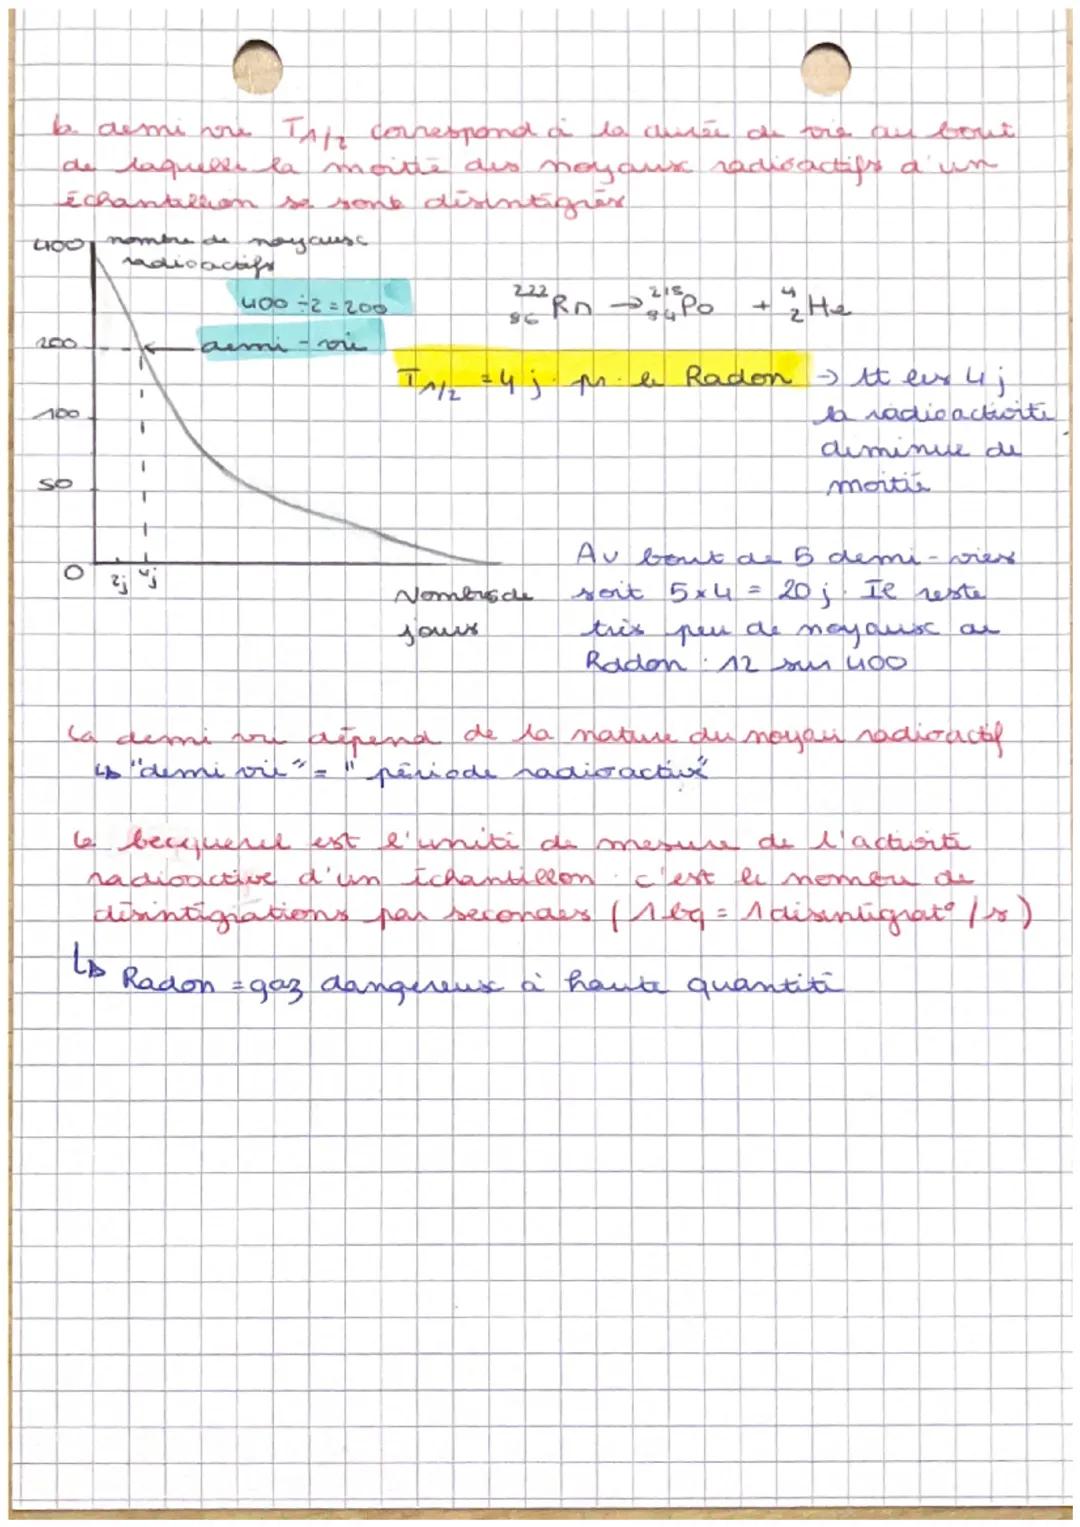 la demi vie T1/2 correspond à la durée de vie au bout
de laquelle la moitié des noyaux radioactifs d'un
échantillon se sont désintégrés
400 nombre de noyaux
radioactifs
400 ÷ 2 = 200
222 86 Rn → 218 84 Po + 4 2 He
200
demi-vie
T1/2 = 4 j. pr. le Radon → tt les 4 j
100
la radioactivité
diminue de
50
moitié
0
2j 4j
Nombre de
jours
Au bout de 5 demi-vies
soit 5 x 4 = 20 j. Il reste
très peu de noyaux de
Radon : 12 sur 400
La demi vie dépend de la nature du noyau radioactif
↳ "demi vie" = "période radioactive"
Le becquerel est l'unité de mesure de l'activité
radioactive d'un échantillon. c'est le nombre de
désintégrations par secondes (1 bq = 1 désintégrat° /s)
↳ Radon = gaz dangereux à haute quantité